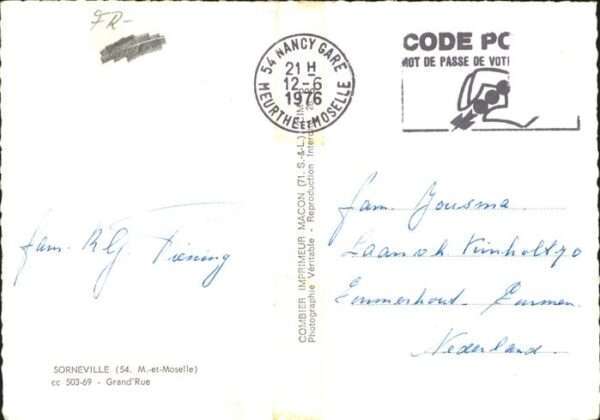 FR-
54 NANCY GARE
21 H
12-6
1976
MEURTHE ET MOSELLE
CODE PO
MOT DE PASSE DE VOT
fam. R.G. Tiening
fam. Bousma
Laan v/d
Emmerhout. Emmen.
Nederland.
COMBIER IMPRIMEUR MACON (71. S.-&-L.)
Photographie Véritable - Reproduction
SORNEVILLE (54. M.-et-Moselle)
cc 503-69 - Grand'Rue